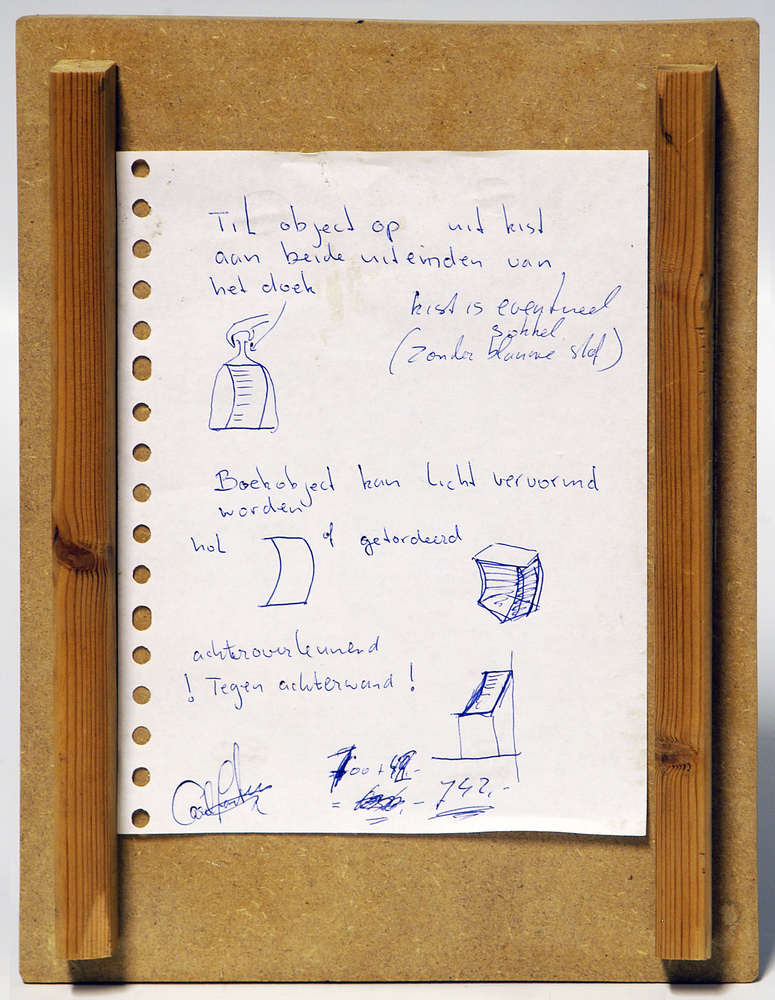 Til object op uit kist
aan beide uiteinden van
het doek
kist is eventueel
sokkel
(zonder blauwe stof)
Boekobject kan licht vervormd
worden
hol of getordeerd
achteroverleunend
! Tegen achterwand !
700 + 42,-
= - 742,-